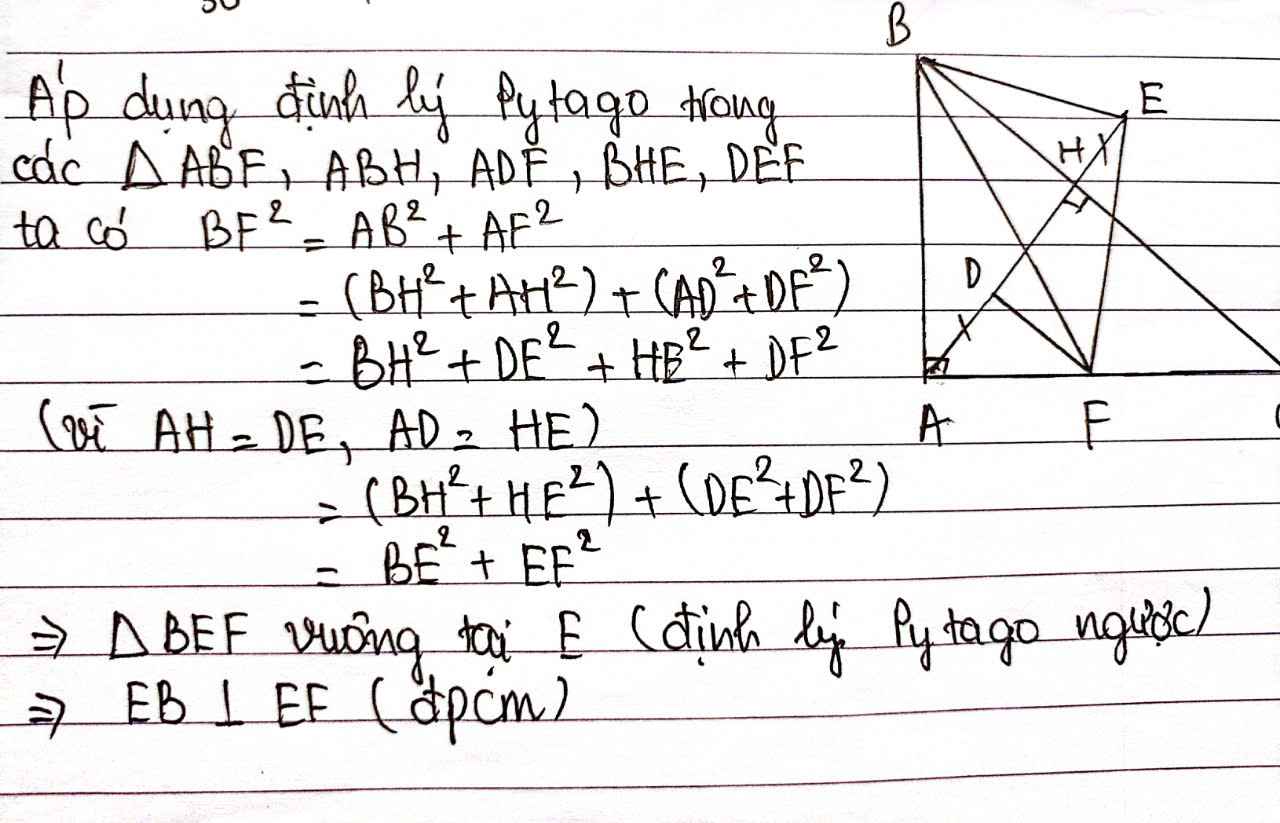 Áp dụng định lý Pytago trong
các Δ ABF, ABH, ADF, BHE, DEF
ta có BF² = AB² + AF²
= (BH² + AH²) + (AD² + DF²)
= BH² + DE² + HE² + DF²
(vì AH = DE, AD = HE)
= (BH² + HE²) + (DE² + DF²)
= BE² + EF²
⇒ Δ BEF vuông tại E (định lý Pytago ngược)
⇒ EB ⊥ EF (đpcm)
B
E
H
D
A F